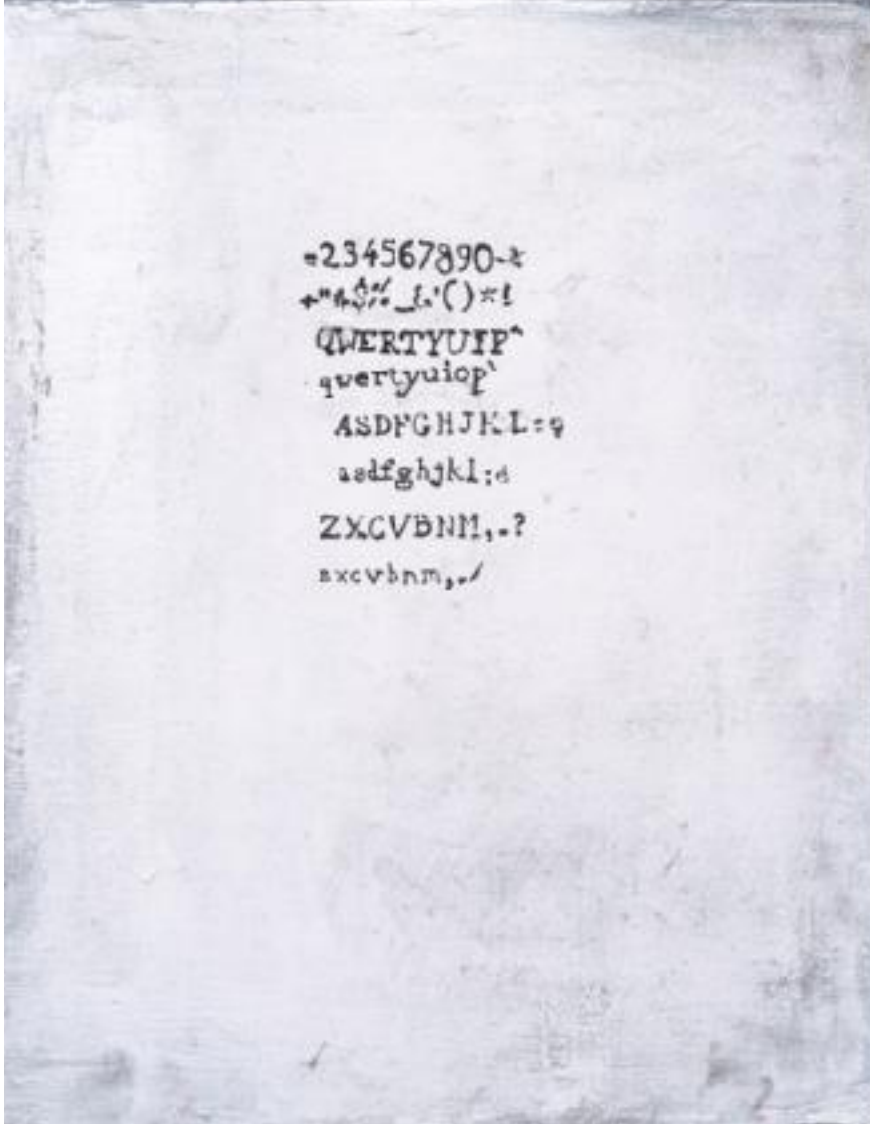 =234567890-
()*!
QWERTYUIP^
qwertyuiop`
ASDFGHJKL:
asdfghjkl;
ZXCVBNM,.?
zxcvbnm,./